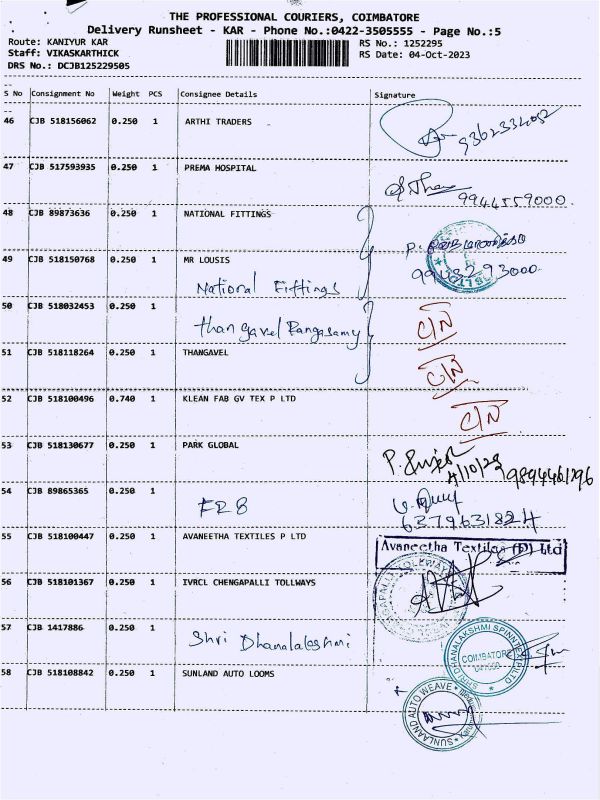 THE PROFESSIONAL COURIERS, COIMBATORE
Delivery Runsheet - KAR - Phone No.:0422-3505555 - Page No.:5
Route: KANIYUR KAR RS No.: 1252295
Staff: VIKASKARTHICK RS Date: 04-Oct-2023
DRS No.: DCJB125229505
S No Consignment No Weight PCS Consignee Details Signature
46 CJB 518156062 0.250 1 ARTHI TRADERS
47 CJB 517593935 0.250 1 PREMA HOSPITAL
9944559000
48 CJB 89873636 0.250 1 NATIONAL FITTINGS
49 CJB 518150768 0.250 1 MR LOUSIS
National Fittings
50 CJB 518032453 0.250 1 C/N
thangavel Rangasamy
51 CJB 518118264 0.250 1 THANGAVEL C/N
52 CJB 518100496 0.740 1 KLEAN FAB GV TEX P LTD C/N
53 CJB 518130677 0.250 1 PARK GLOBAL
4/10/23 9894461296
54 CJB 89865365 0.250 1 FR8
6379631824
55 CJB 518100447 0.250 1 AVANEETHA TEXTILES P LTD
Avaneetha Textiles (P) Ltd
56 CJB 518101367 0.250 1 IVRCL CHENGAPALLI TOLLWAYS
57 CJB 1417886 0.250 1 Shri Dhanalakshmi
SHRI DHANALAKSHMI SPINNTEX (P) LTD
COIMBATORE
58 CJB 518108842 0.250 1 SUNLAND AUTO LOOMS
SUNLAAND AUTO WEAVE